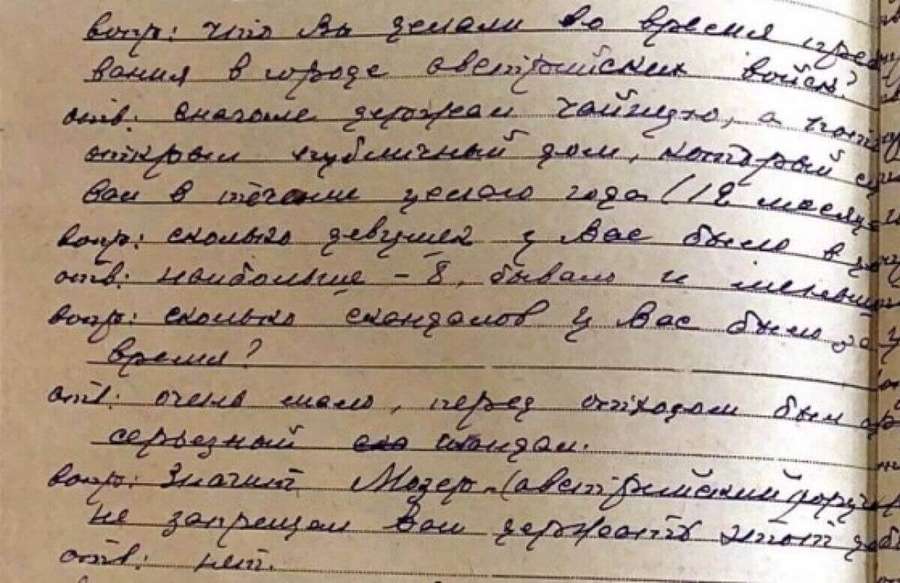 вопр: что Вы делали во время пре
вания в городе австрийских войск?
отв: вначале держал чайную, а пот
открыл публичный дом, который су
вал в течение целого года (12 месяц
вопр: сколько девушек у Вас было в
отв: наибольше – 8, бывало и меньш
вопр: сколько скандалов у Вас было за
время?
отв: очень мало, перед отходом был
серьезный скандал.
вопр: Значит Мозер (австрийский
не запрещал Вам держать этот
отв: нет.